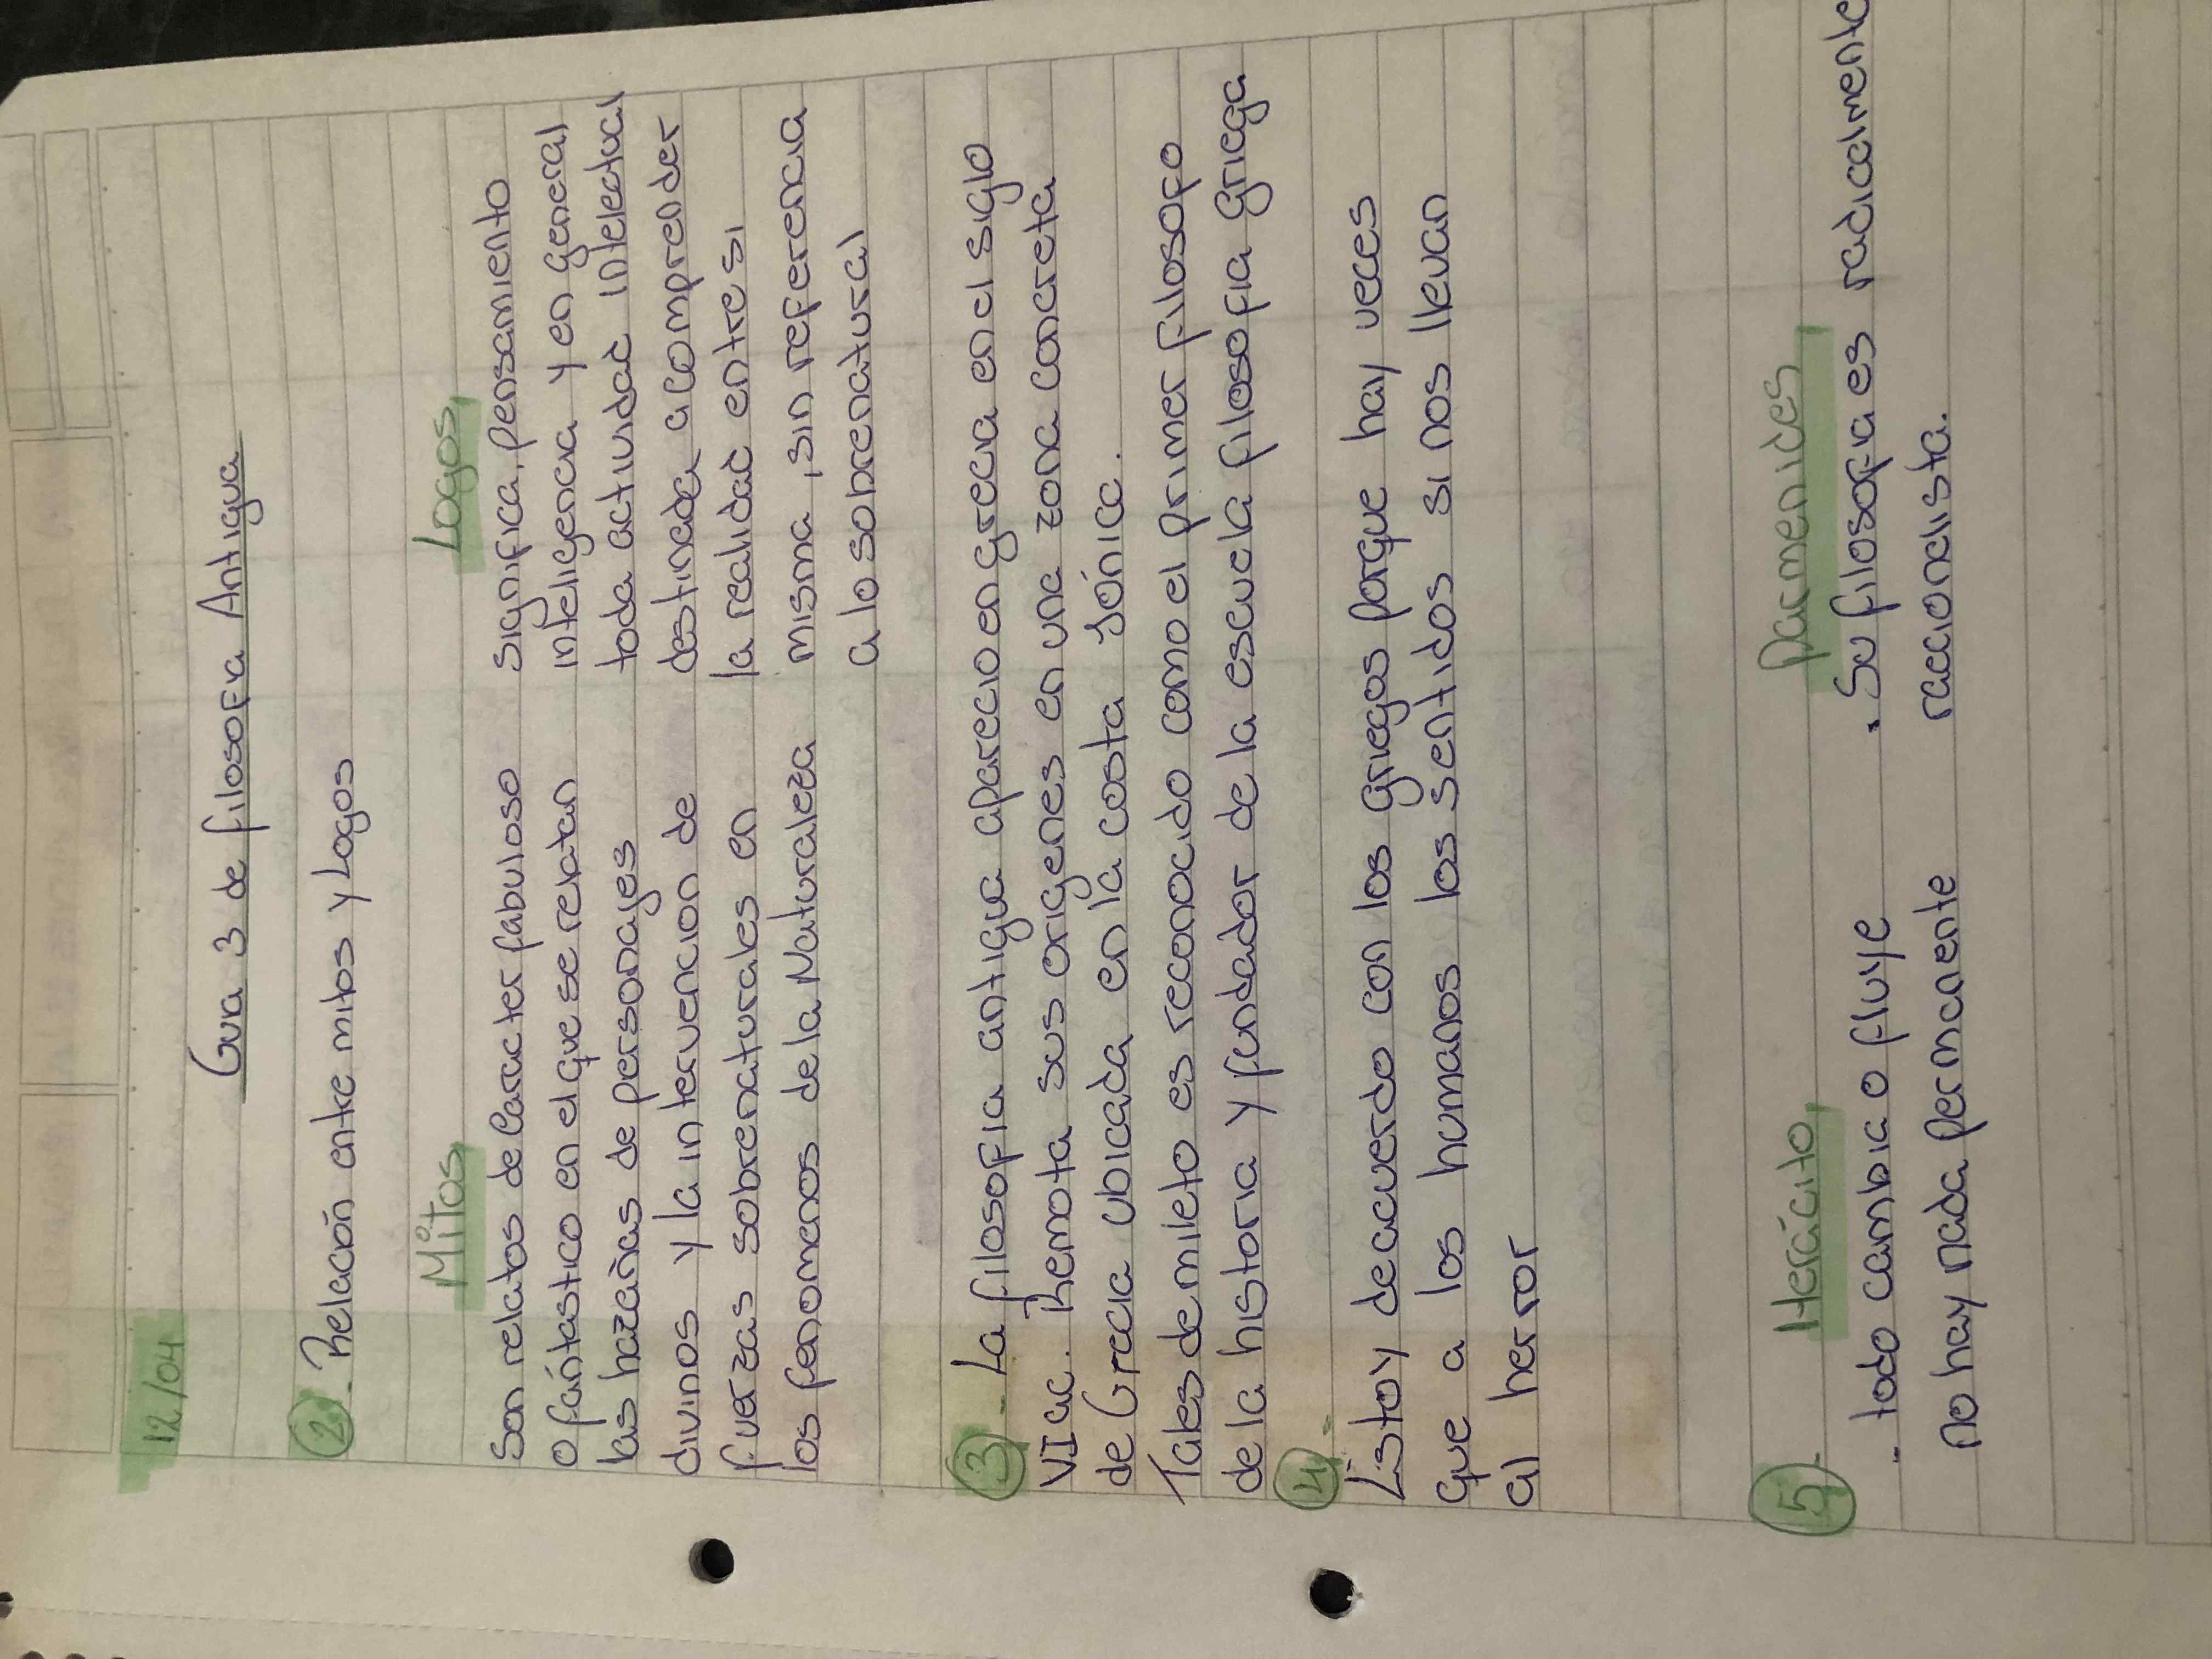 12/04
Guia 3 de filosofia Antigua
2. Relación entre mitos y Logos
Mitos Logos
Son relatos de Caracter fabuloso significa, pensamiento
o fántastico en el que se relatan inteligencia y en general
las hazañas de personajes toda actividad intelectual
divinos y la intervencion de destinada a comprender
fuerzas sobrenaturales en la realidad entre si
los fenomenos de la Naturaleza misma, sin referencia
a lo sobrenatural
3- La filosofia antigua aparecio en grecia en el siglo
VI ac. Remota sus origenes en una zona concreta
de Grecia ubicada en la costa Jónica.
Tales de mileto es reconocido como el primer filosofo
de la historia y fundador de la escuela filosofia Griega
4-
Estoy de acuerdo con los Griegos porque hay veces
que a los humanos los sentidos si nos llevan
al herror
5. Herácito Parmenides
- todo cambia o fluye . Su filosofia es radicalmente
no hay nada permanente racionalista.